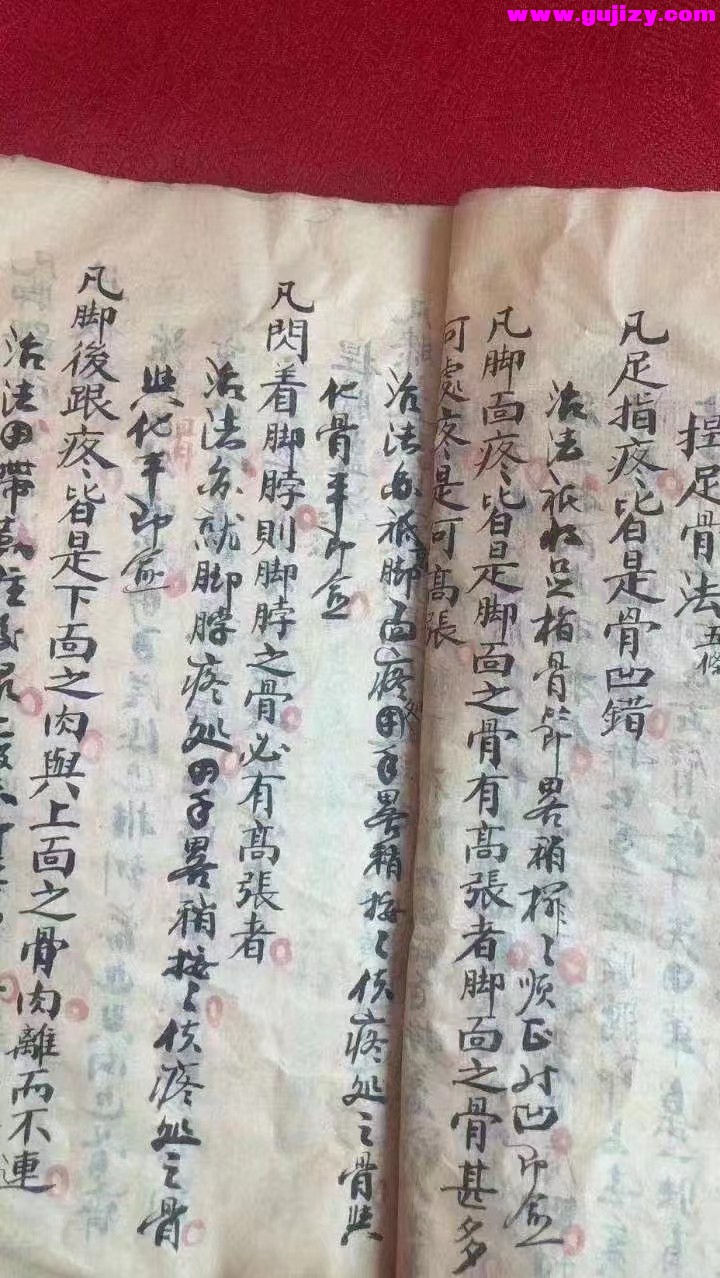 www.gujizy.com
捏足骨法 五條
凡足指疼皆是骨凹錯
治法祇將足指骨節畧稍揮〻順正对凹即愈
凡脚面疼皆是脚面之骨有高張者脚面之骨甚多
何處疼是何高張
治法亦祇脚面疼处用手畧稍按〻使疼处之骨與
化骨平即愈
凡閃着脚脖則脚脖之骨必有高張者
治法亦就脚脖疼处用手畧稍按〻使疼处之骨
與化平即愈
凡脚後跟疼皆是下面之肉與上面之骨肉離而不連
治法用帶